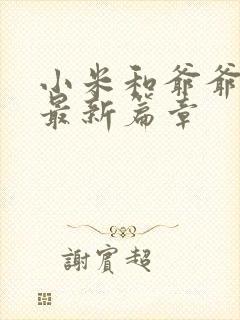 小米和爷爷
最新篇章
謝賓超